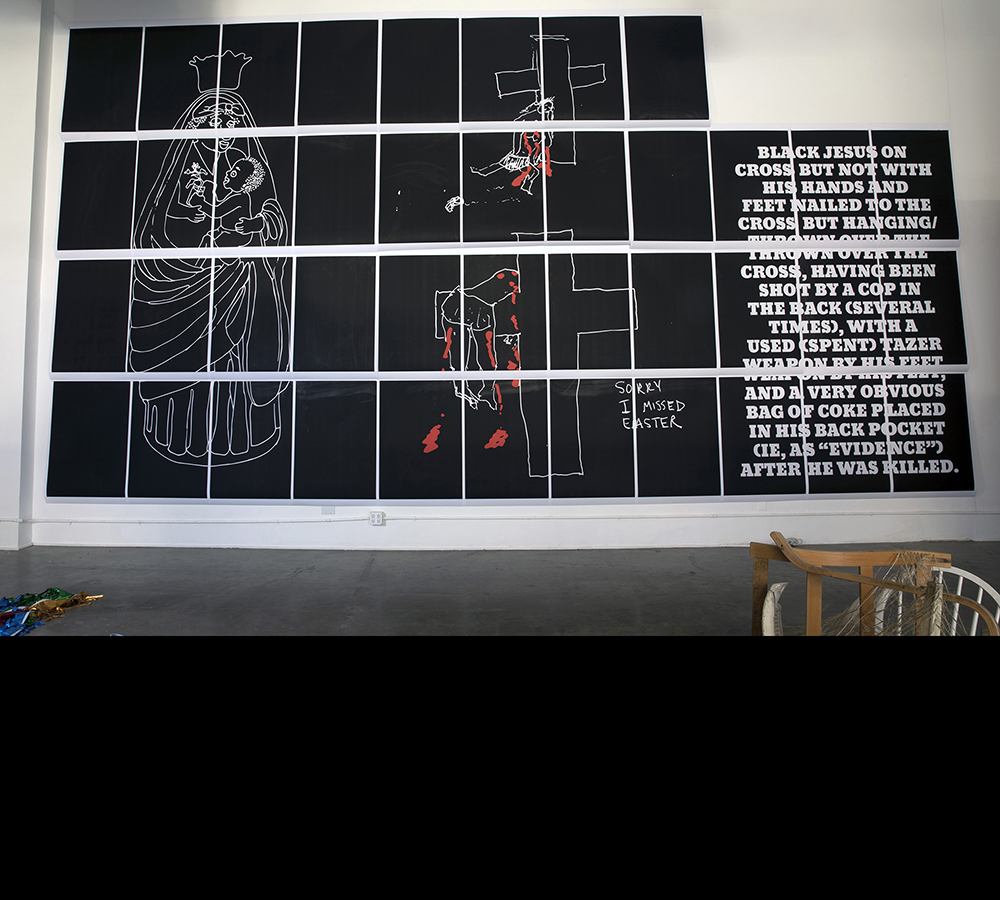 SORRY
I MISSED
EASTER
BLACK JESUS ON
CROSS BUT NOT WITH
HIS HANDS AND
FEET NAILED TO THE
CROSS BUT HANGING/
THROWN OVER THE
THROWN OVER THE
CROSS, HAVING BEEN
SHOT BY A COP IN
THE BACK (SEVERAL
TIMES), WITH A
USED (SPENT) TAZER
WEAPON BY HIS FEET
WEAPON BY HIS FEET,
AND A VERY OBVIOUS
BAG OF COKE PLACED
IN HIS BACK POCKET
(IE, AS “EVIDENCE”)
AFTER HE WAS KILLED.